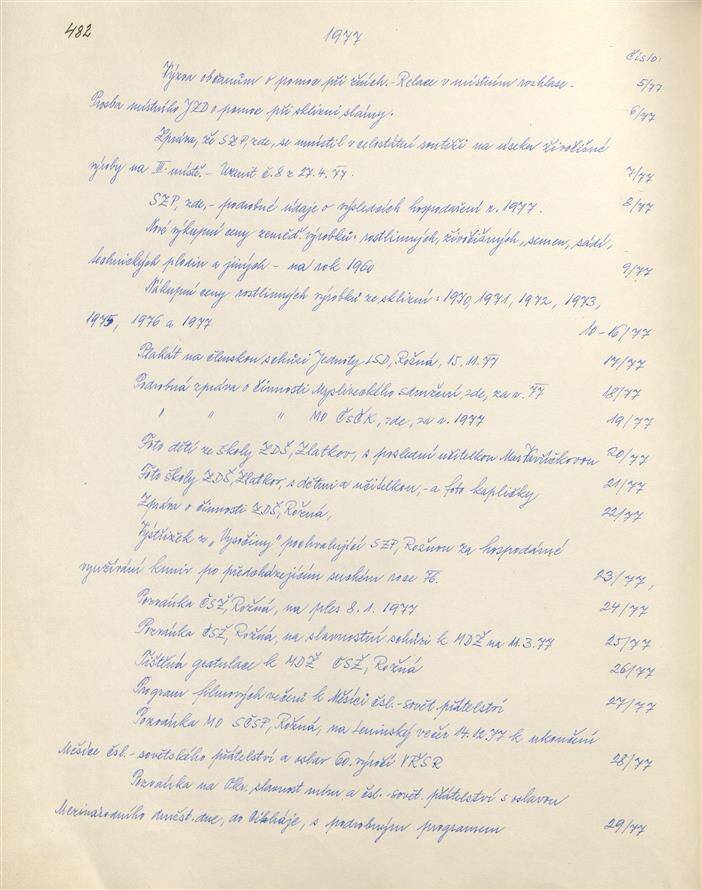 482
1977
Číslo:
Výzva občanům o pomoc při žních. - Relace v místním rozhlase. 5/77
Prosba místního JZD o pomoc při sklizni slámy. 6/77
Zpráva, že SZP, zde, se umístil v celostátní soutěži na úseku živočišné
výroby na III. místě. - Uznit č. 8 z 27.4.77. 7/77
SZP, zde, - podrobné údaje o výsledcích hospodaření r. 1977. 8/77
Nové výkupní ceny zeměď. výrobků rostlinných, živočišných, semen, sádí,
technických plodin a jiných - na rok 1960 9/77
Nákupní ceny rostlinných výrobků ze sklizní: 1970, 1971, 1972, 1973,
1975, 1976 a 1977 10-16/77
Plakát na členskou schůzi Jednoty LSD, Rožná, 15.11.77 17/77
Podrobná zpráva o činnosti Mysliveckého sdružení, zde, za r. 77 18/77
" " " MO ČsČK, zde, za r. 1977 19/77
Foto dětí ze školy ZDŠ, Zlatkov, s poslední učitelkou 20/77
Foto školy ZDŠ, Zlatkov, s dětmi a učitelkou, - a foto kapličky 21/77
Zpráva o činnosti ZDŠ, Rožná, 22/77
Výstřižek z „Vysočiny" pochvalující SZP, Rožnou za hospodárné
využívání krmiv po předcházejícím suchém roce 76. 23/77,
Pozvánka ČSŽ, Rožná, na ples 8.1.1977 24/77
Pozvánka ČSŽ, Rožná, na slavnostní schůzi k MDŽ na 11.3.77 25/77
Tištěná gratulace k MDŽ ČSŽ, Rožná 26/77
Program filmových večerů k Měsíci čsl.-sovět. přátelství 27/77
Pozvánka MO SČSP, Rožná, na leninský večer 14.12.77 k ukončení
Měsíce čsl.-sovětského přátelství a oslav 60. výročí VŘSR 28/77
Pozvánka na Okr. slavnost míru a čsl.-sovět. přátelství s oslavou
Mezinárodního družst. dne, do s podrobným programem 29/77